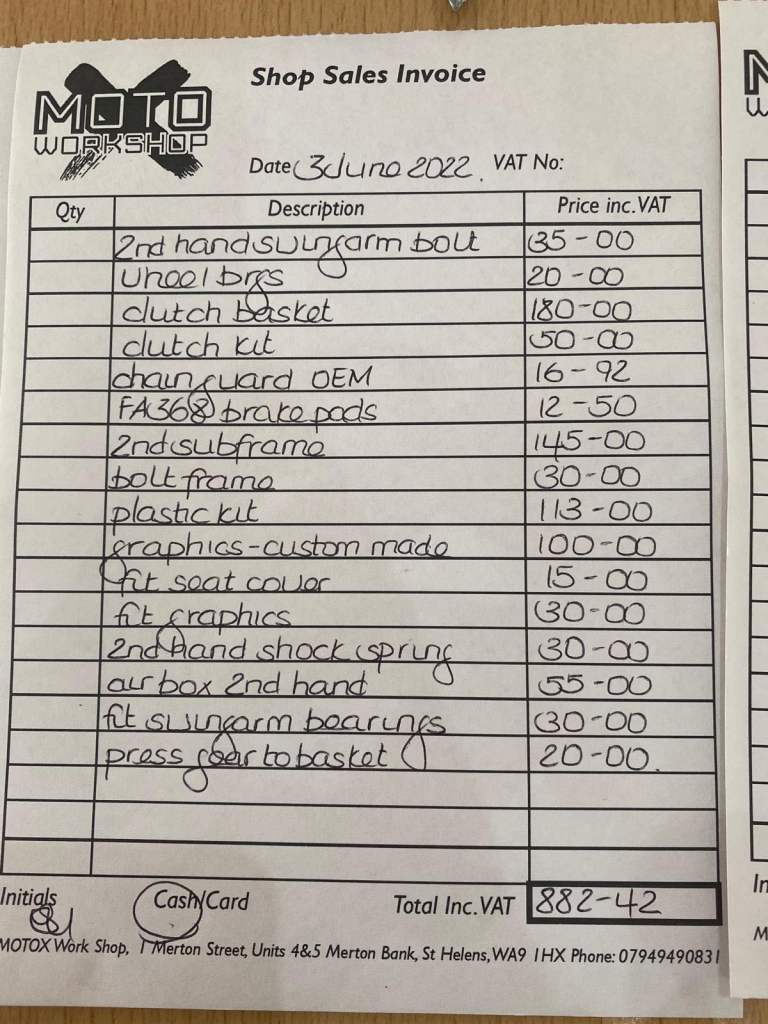 Shop Sales Invoice
MOTO
WORKSHOP
Date 3 June 2022. VAT No:
Qty Description Price inc.VAT
2nd hand swingarm bolt 35-00
wheel brgs 20-00
clutch basket 180-00
clutch kit 50-00
chain guard OEM 16-92
FA368 brake pads 12-50
2nd subframe 145-00
bolt frame 30-00
plastic kit 113-00
graphics-custom made 100-00
fit seat cover 15-00
fit graphics 30-00
2nd hand shock spring 30-00
air box 2nd hand 55-00
fit swingarm bearings 30-00
press gear to basket 20-00.
Initials Cash/Card Total Inc.VAT 882-42
MOTOX Work Shop, 1 Merton Street, Units 4&5 Merton Bank, St Helens, WA9 1HX Phone: 07949490831